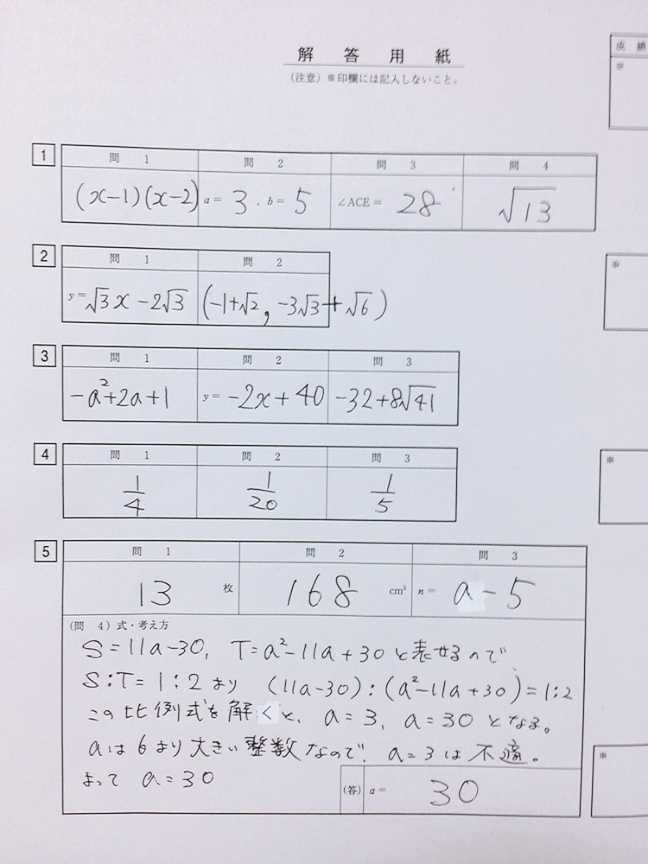 解答用紙
(注意)※印欄には記入しないこと。
成績
※
1
問 1 問 2 問 3 問 4
(x-1)(x-2) a= 3 . b= 5 ∠ACE= 28° √13
2
問 1 問 2
※
y= √3x-2√3 (-1+√2, -3√3+√6)
3
問 1 問 2 問 3
-a²+2a+1 y= -2x+40 -32+8√41
4
問 1 問 2 問 3
※
1/4 1/20 1/5
5
問 1 問 2 問 3
13 枚 168 cm² n= a-5
(問 4) 式・考え方
S=11a-30, T=a²-11a+30 と表せるので、
S:T=1:2 より (11a-30):(a²-11a+30)=1:2
この比例式を解くと、a=3, a=30 となる。
aは6より大きい整数なので、a=3は不適。
よって a=30
※
(答) a= 30